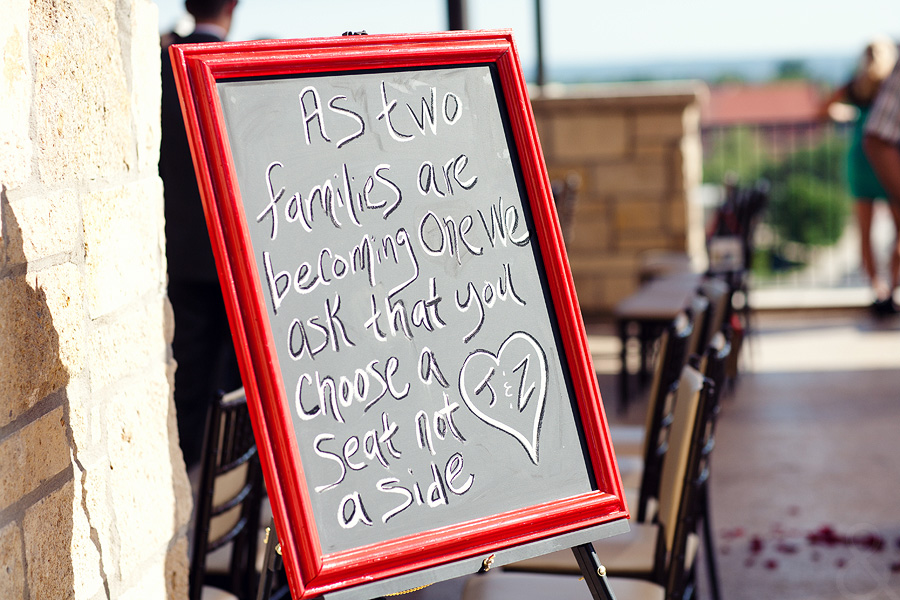 As two
families are
becoming One We
ask that you
Choose a
Seat not
a side
J & Z